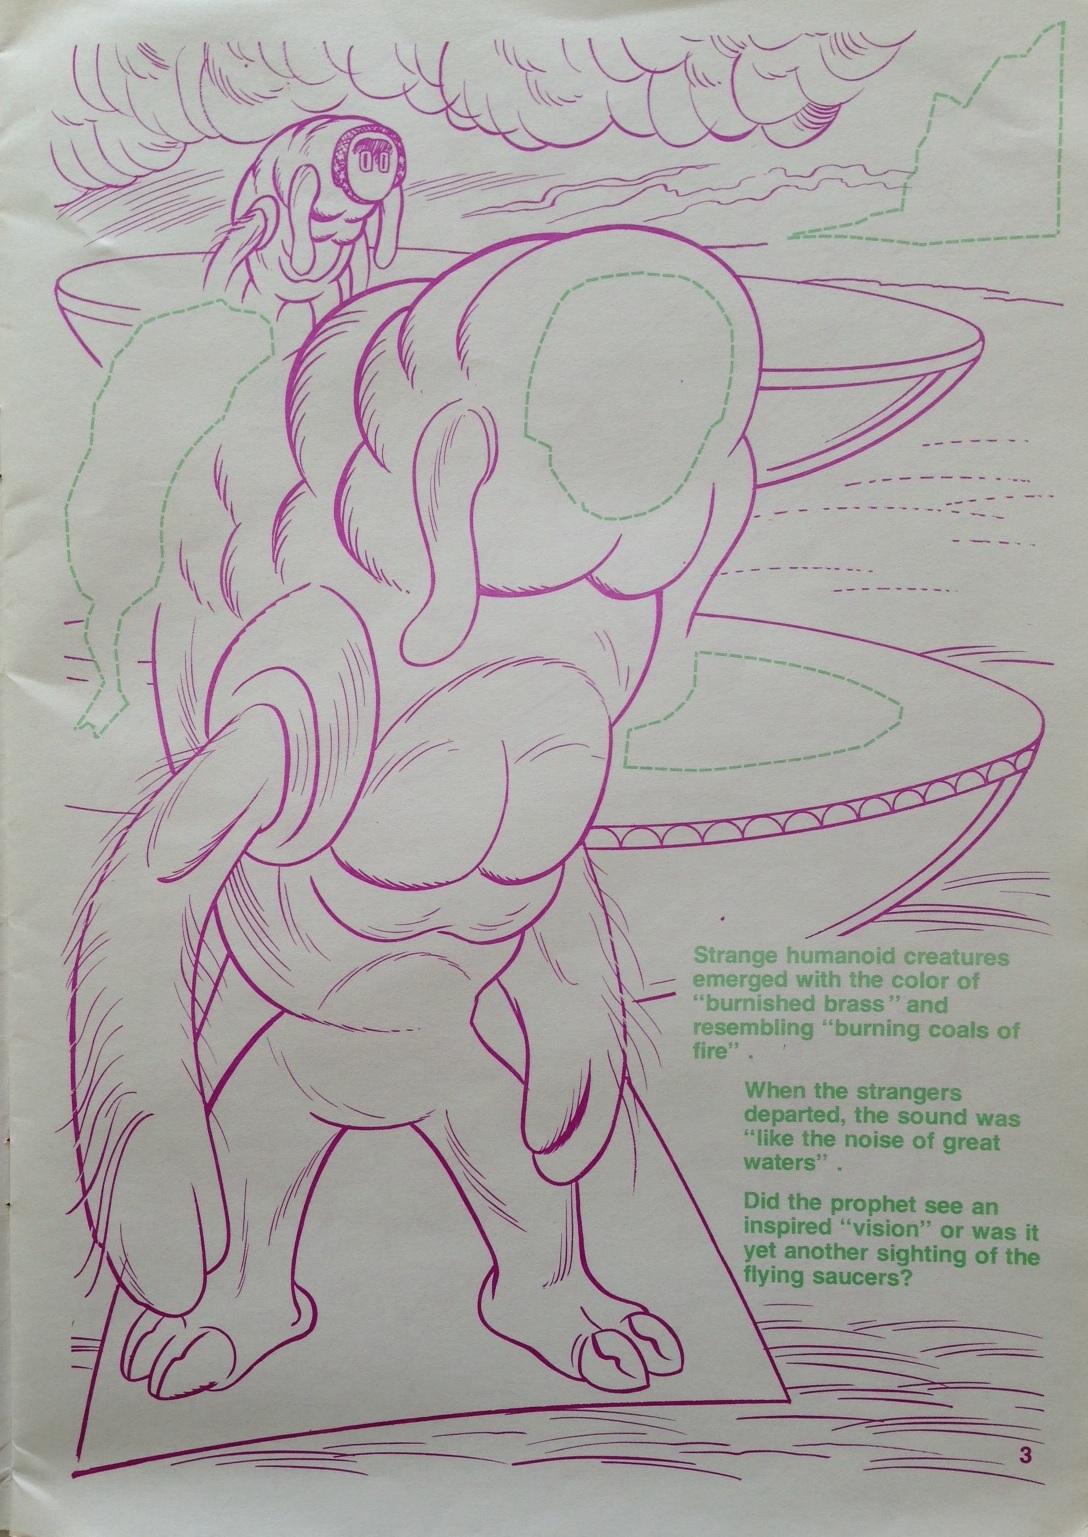 Strange humanoid creatures
emerged with the color of
“burnished brass” and
resembling “burning coals of
fire” .
When the strangers
departed, the sound was
“like the noise of great
waters” .
Did the prophet see an
inspired “vision” or was it
yet another sighting of the
flying saucers?
3